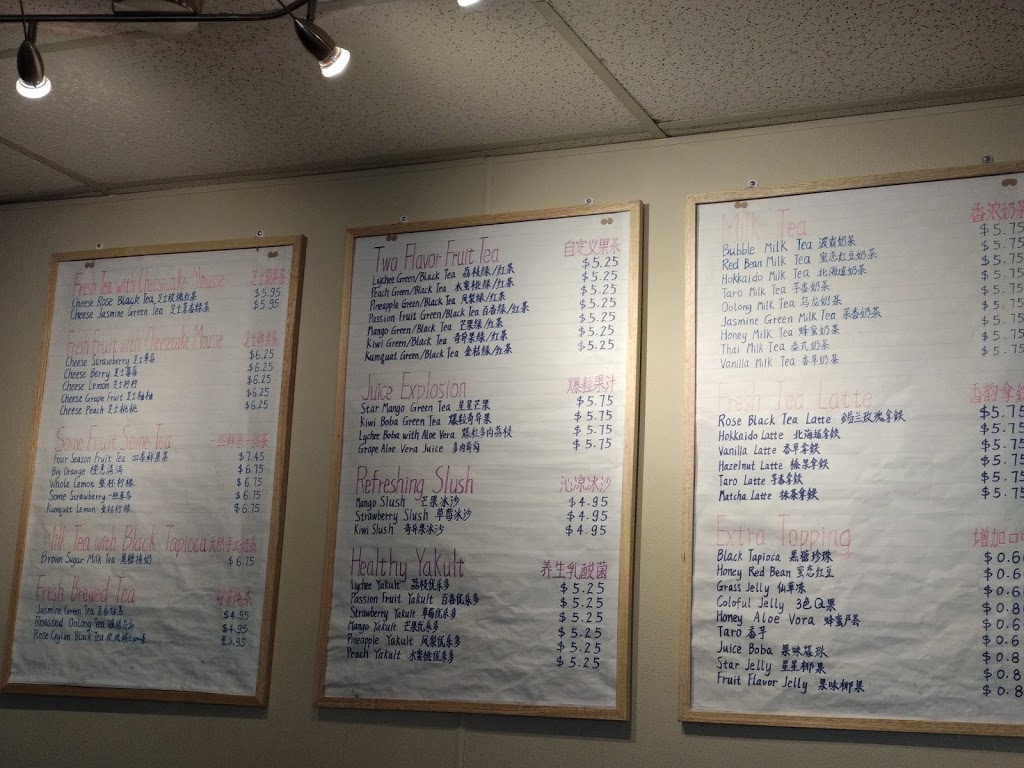 Fresh Tea with Cheesecake Mousse 芝士現萃茶
Cheese Rose Black Tea 芝士玫瑰红茶 $5.95
Cheese Jasmine Green Tea 芝士茉香绿茶 $5.95
Fresh Fruit with Cheesecake Mousse 芝士鲜果茶
Cheese Strawberry 芝士草莓 $6.25
Cheese Berry 芝士莓莓 $6.25
Cheese Lemon 芝士柠柠 $6.25
Cheese Grape Fruit 芝士柚柚 $6.25
Cheese Peach 芝士桃桃 $6.25
Some Fruit Some Tea 一些鲜果一些茶
Four Season Fruit Tea 四季鲜果茶 $7.45
Big Orange 橙意满满 $6.75
Whole Lemon 整杯柠檬 $6.75
Some Strawberry 一些草莓 $6.75
Kumquat Lemon 金桔柠檬 $6.75
Milk Tea with Black Tapioca
Brown Sugar Milk Tea 黑糖撞奶 $6.75
Fresh Brewed Tea
Jasmine Green Tea 茉香绿茶 $4.95
Roasted Oolong Tea $4.95
Rose Ceylon Black Tea
Two Flavor Fruit Tea 自定义果茶
Lychee Green/Black Tea 荔枝绿/红茶 $5.25
Peach Green/Black Tea 水蜜桃绿/红茶 $5.25
Pineapple Green/Black Tea 凤梨绿/红茶 $5.25
Passion Fruit Green/Black Tea 百香绿/红茶 $5.25
Mango Green/Black Tea 芒果绿/红茶 $5.25
Kiwi Green/Black Tea 奇异果绿/红茶 $5.25
Kumquat Green/Black Tea 金桔绿/红茶 $5.25
Juice Explosion 爆粒果汁
Star Mango Green Tea 星星芒果 $5.75
Kiwi Boba Green Tea 爆粒奇异果 $5.75
Lychee Boba with Aloe Vera 爆粒多肉荔枝 $5.75
Grape Aloe Vera Juice 多肉葡萄 $5.75
Refreshing Slush 沁凉冰沙
Mango Slush 芒果冰沙 $4.95
Strawberry Slush 草莓冰沙 $4.95
Kiwi Slush 奇异果冰沙 $4.95
Healthy Yakult 养生乳酸菌
Lychee Yakult 荔枝优乐多 $5.25
Passion Fruit Yakult 百香优乐多 $5.25
Strawberry Yakult 草莓优乐多 $5.25
Mango Yakult 芒果优乐多 $5.25
Pineapple Yakult 凤梨优乐多 $5.25
Peach Yakult 水蜜桃优乐多 $5.25
Milk Tea 香浓奶茶
Bubble Milk Tea 波霸奶茶 $5.75
Red Bean Milk Tea 蜜恋红豆奶茶 $5.75
Hokkaido Milk Tea 北海道奶茶 $5.75
Taro Milk Tea 芋香奶茶 $5.75
Oolong Milk Tea 乌龙奶茶 $5.75
Jasmine Green Milk Tea 茉香奶茶 $5.75
Honey Milk Tea 蜂蜜奶茶 $5.75
Thai Milk Tea 泰式奶茶 $5.75
Vanilla Milk Tea 香草奶茶 $5.75
Fresh Tea Latte 香韵拿铁
Rose Black Tea Latte 锡兰玫瑰拿铁 $5.75
Hokkaido Latte 北海道拿铁 $5.75
Vanilla Latte 香草拿铁 $5.75
Hazelnut Latte 榛果拿铁 $5.75
Taro Latte 芋香拿铁 $5.75
Matcha Latte 抹茶拿铁 $5.75
Extra Topping 增加口
Black Tapioca 黑糖珍珠 $0.6
Honey Red Bean 蜜恋红豆 $0.6
Grass Jelly 仙草冻 $0.6
Coloful Jelly 3色Q果 $0.8
Honey Aloe Vora 蜂蜜芦荟 $0.6
Taro 香芋 $0.6
Juice Boba 果味爆珠 $0.8
Star Jelly 星星椰果 $0.8
Fruit Flavor Jelly 果味椰果 $0.8